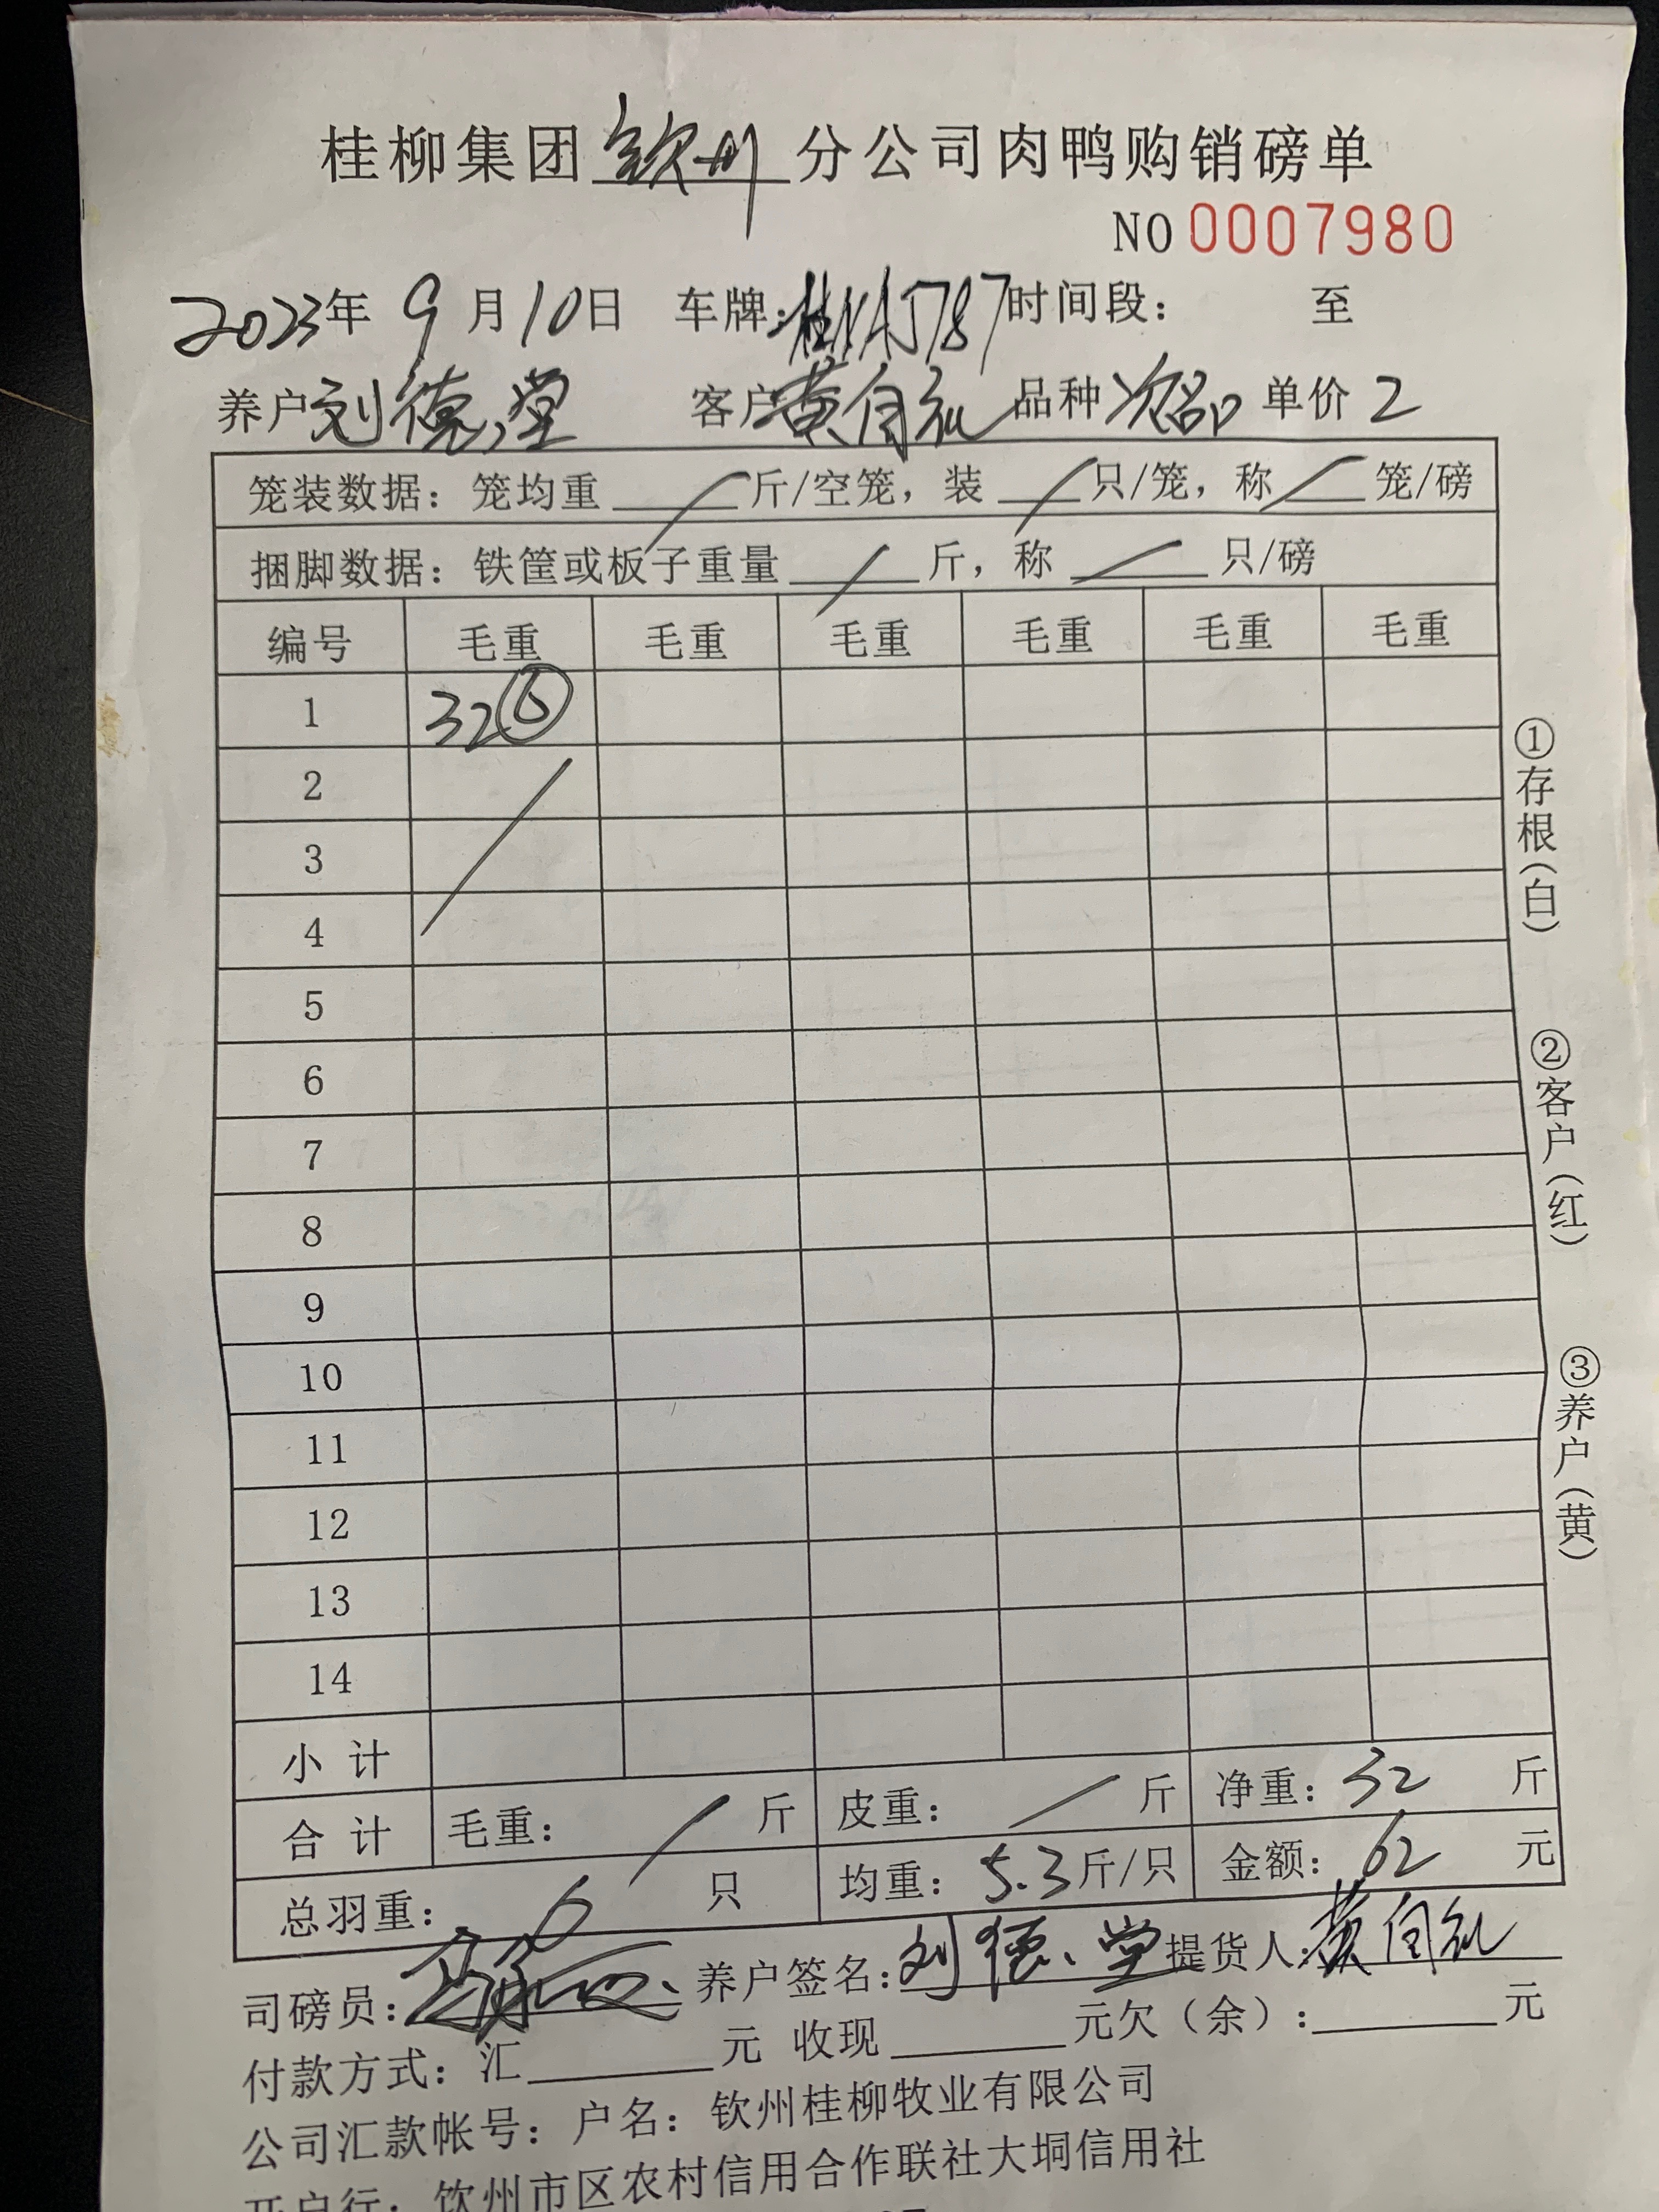 桂柳集团钦州分公司肉鸭购销磅单
NO 0007980
2023年 9月10日 车牌:桂NA5787 时间段: 至
养户 刘德堂 客户 黄自礼 品种 次品 单价 2
笼装数据: 笼均重 / 斤/空笼, 装 / 只/笼, 称 / 笼/磅
捆脚数据: 铁筐或板子重量 / 斤, 称 / 只/磅
编号 毛重 毛重 毛重 毛重 毛重 毛重
1 32 ⑥
2
3
4
5
6
7
8
9
10
11
12
13
14
小 计
合 计 毛重: / 斤 皮重: / 斤 净重: 32 斤
总羽重: 6 只 均重: 5.3 斤/只 金额: 62 元
司磅员: 养户签名: 刘德堂 提货人: 黄自礼
付款方式: 汇 元 收现 元欠(余): 元
公司汇款帐号: 户名: 钦州桂柳牧业有限公司
开户行: 钦州市区农村信用合作联社大垌信用社
①存根(白)
②客户(红)
③养户(黄)